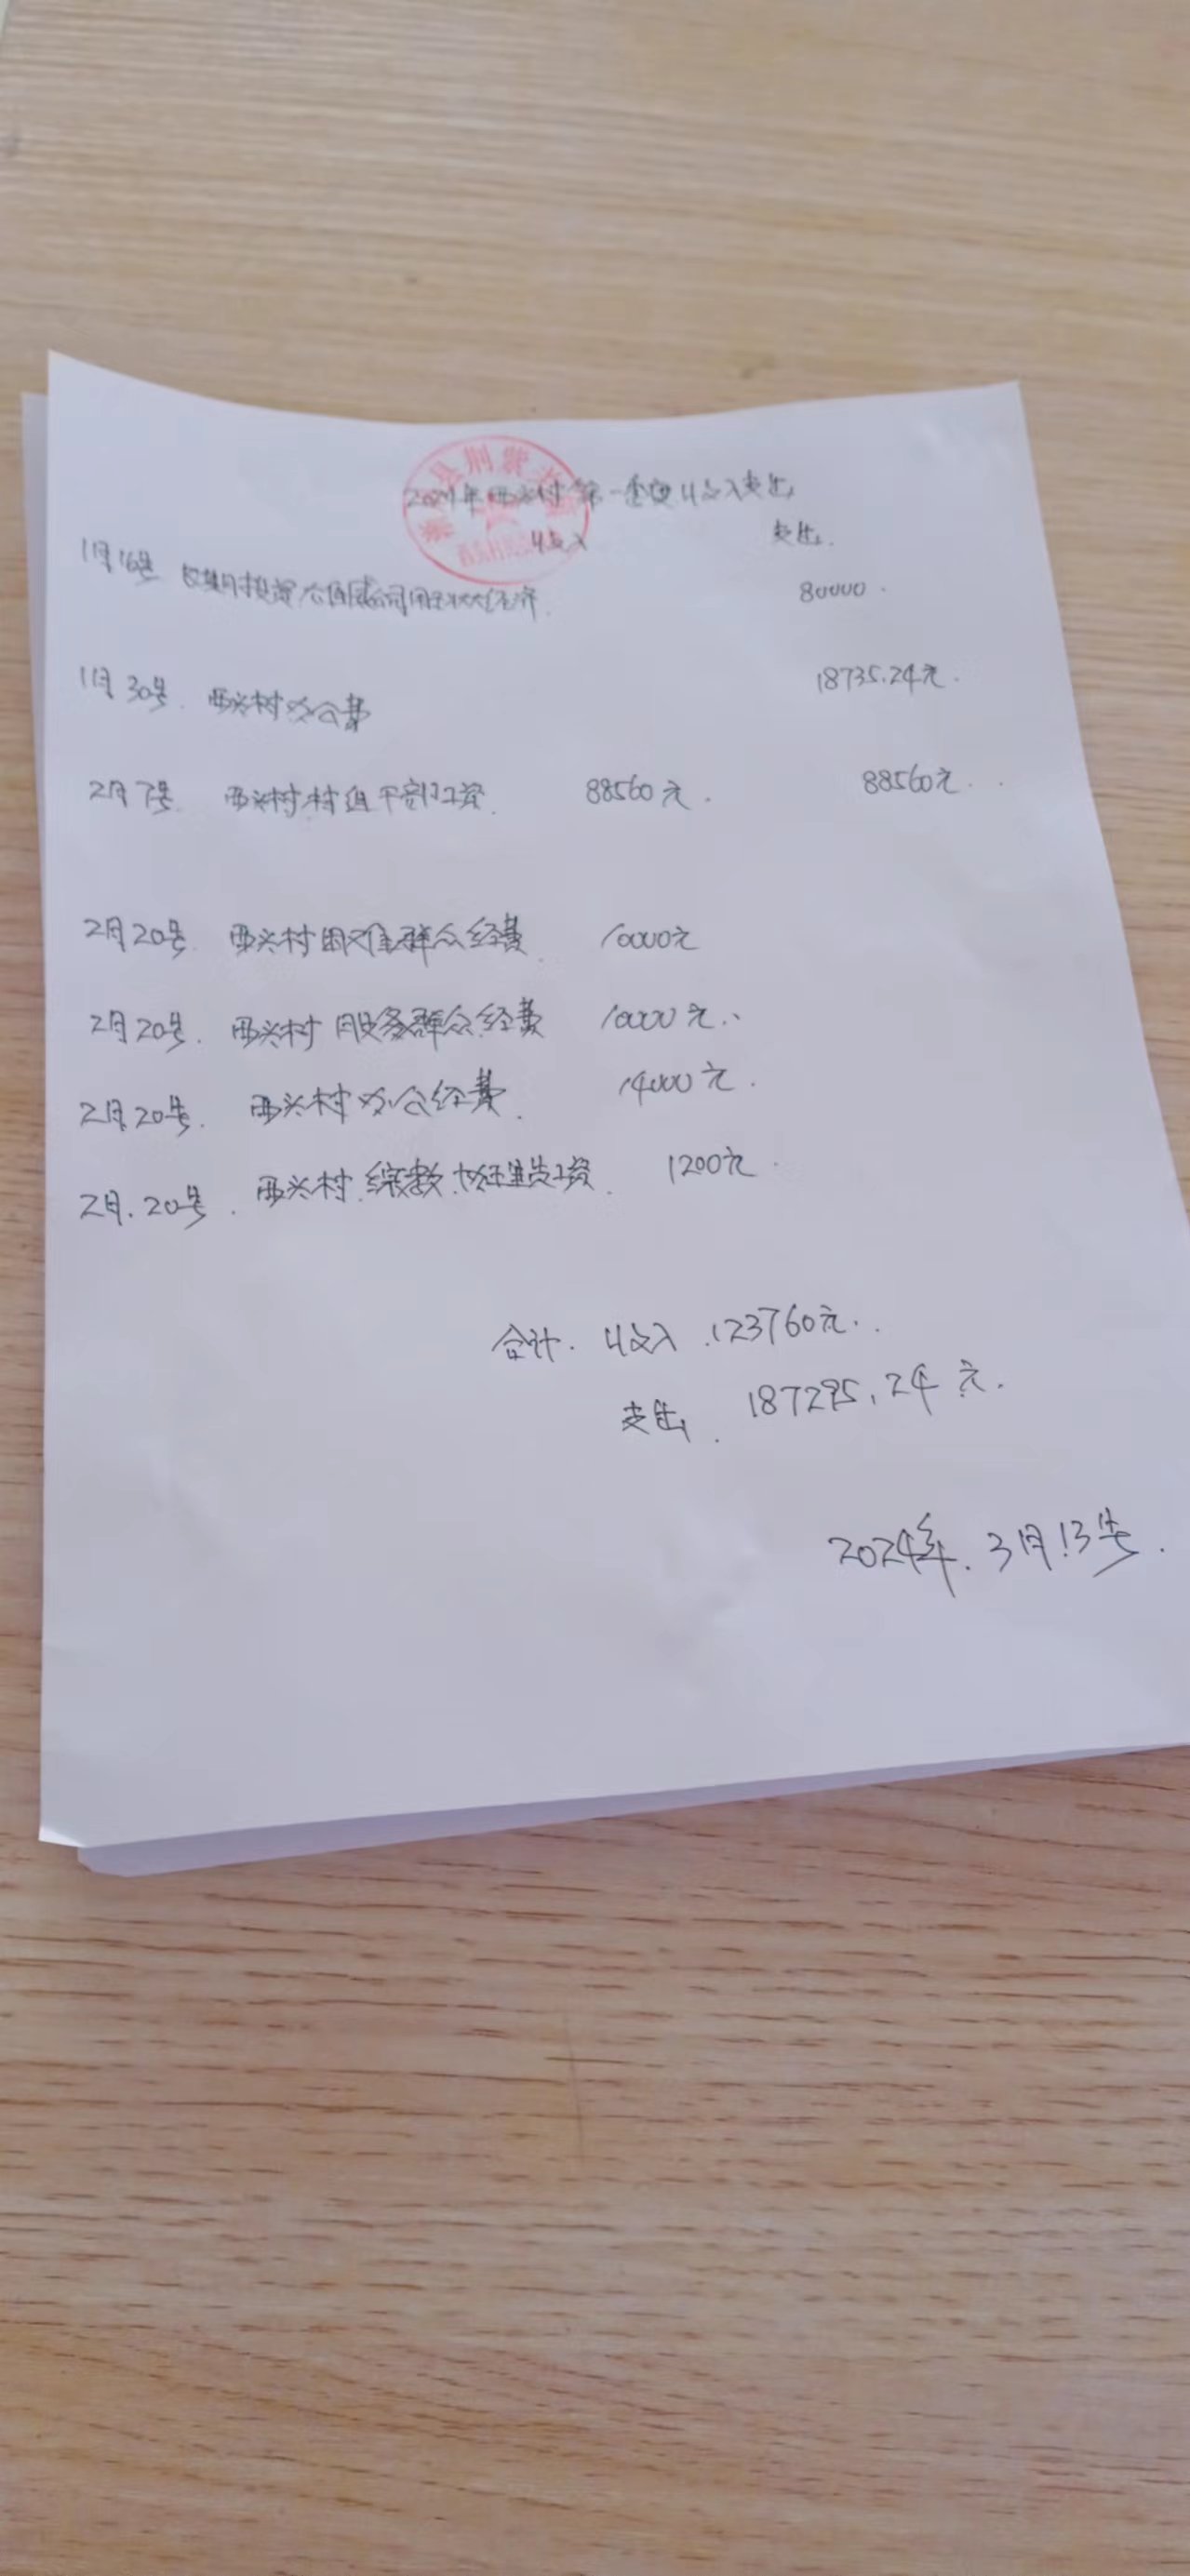 2024年西兴村第一季度收入支出
收入 支出
1月16号 投资 公司用于壮大经济 80000
1月30号 西兴村办公费 18735.24元
2月7号 西兴村村组干部工资 88560元 88560元
2月20号 西兴村困难群众经费 10000元
2月20号 西兴村服务群众经费 10000元
2月20号 西兴村办公经费 14000元
2月20号 西兴村 工资 1200元
合计 收入 123760元
支出 187295.24元
2024年3月13号